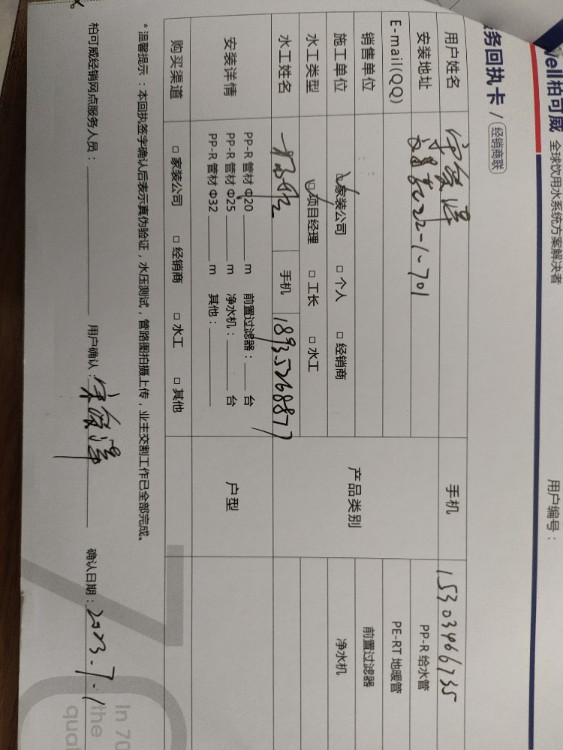 vell柏可威 全球饮用水系统方案解决者
用户编号：
务回执卡 / 经销商联
用户姓名 手机 15303466735
安装地址 22-1-701 PP-R 给水管
E-mail(QQ) PE-RT 地暖管
销售单位 产品类别 前置过滤器
施工单位 ☑家装公司 □ 个人 □ 经销商 净水机
水工类型 ☑项目经理 □ 工长 □ 水工
水工姓名 手机 18935268877
安装详情 PP-R 管材 Φ20 m 前置过滤器： 台 户型
PP-R 管材 Φ25 m 净水机： 台
PP-R 管材 Φ32 m 其他：
购买渠道 □ 家装公司 □ 经销商 □ 水工 □ 其他
* 温馨提示：本回执签字确认后表示真伪验证，水压测试，管路图拍摄上传，业主交割工作已全部完成。
柏可威经销网点服务人员： 用户确认： 确认日期：2023.7.1
In 70
the
qual